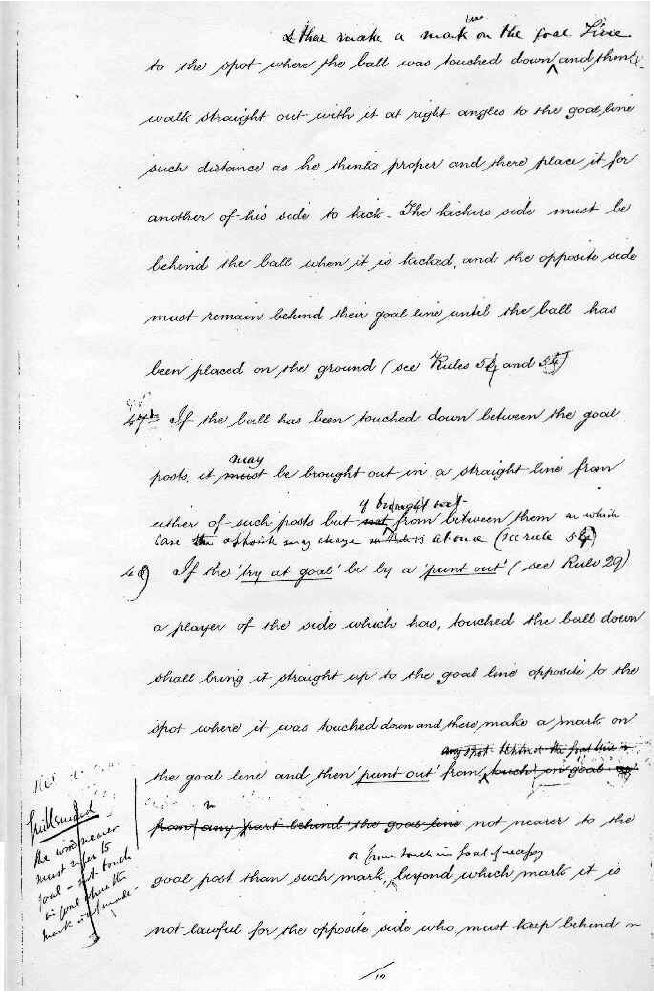 & there make a mark on the goal Line
to the spot where the ball was touched down and thence
walk straight out with it at right angles to the goal line
such distance as he thinks proper and there place it for
another of his side to kick - The kickers side must be
behind the ball when it is kicked, and the opposite side
must remain behind their goal line until the ball has
been placed on the ground (see Rules 54 and 55)
47 If the ball has been touched down between the goal
may
posts, it must be brought out in a straight line from
if brought out
either of such posts but not from between them in which
case the opposite may charge at once (see rule 54)
If the 'try at goal' be by a 'punt out' (see Rule 29)
a player of the side which has, touched the ball down
shall bring it straight up to the goal line opposite to the
spot where it was touched down and there make a mark on
any spot behind the goal line
the goal line and then 'punt out' from touch in goal
from any part behind the goal line not nearer to the
or from touch in goal if necessary
goal post than such mark, beyond which mark it is
not lawful for the opposite side who must keep behind
the word nearer
must refer to
goal - not touch
in goal
mark is made -